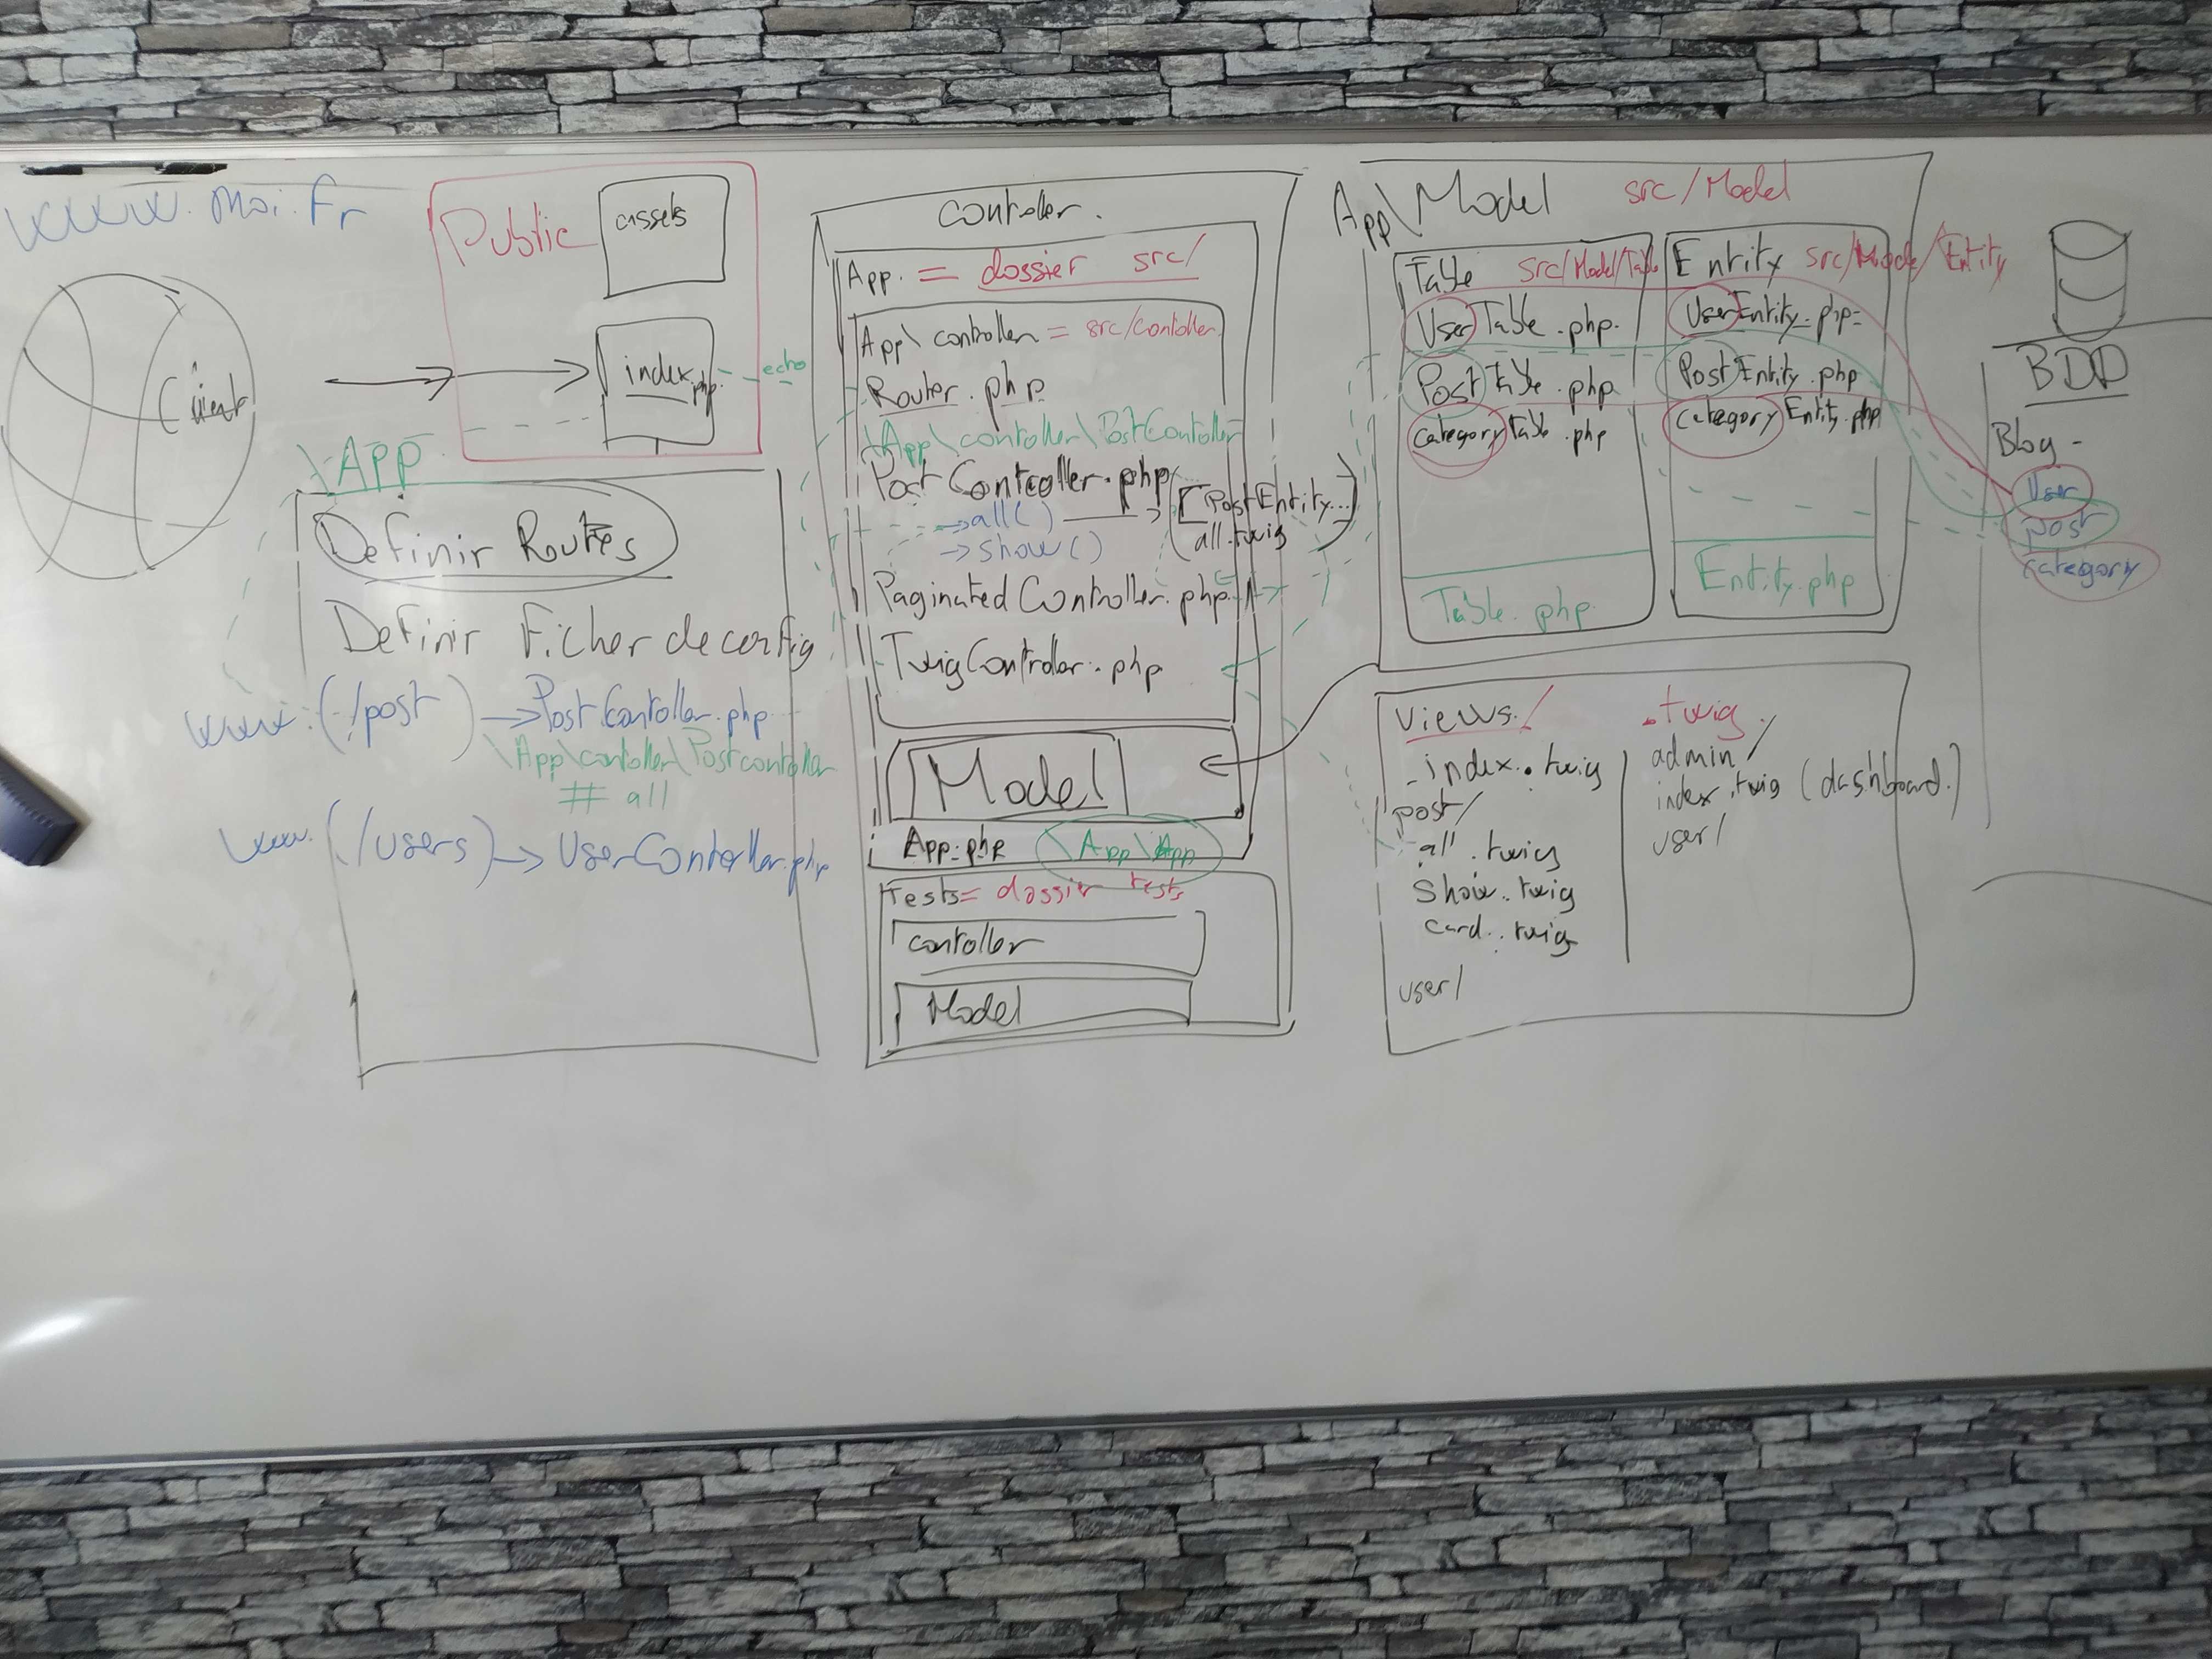 www.moi.fr
Client
Public
assets
index.php
echo
\APP
Definir Routes
Definir Ficher de config
www.(/post) → PostController.php
\App\controller\Postcontroller
## all
www.(/users) → UserController.php
Controller.
App. = dossier src/
App\controller = src/Controller
Router.php
\App\controller\PostController
PostController.php
→ all() → ([PostEntity...]
all.twig)
→ show()
PaginatedController.php
TwigController.php
Model
App.php \App\App
Tests = dossier tests
controller
Model
App\Model src/Model
Table src/Model/Table
UserTable.php
PostTable.php
categoryTable.php
Table.php
Entity src/Mode/Entity
UserEntity.php
PostEntity.php
categoryEntity.php
Entity.php
views/
_index.twig
post/
all.twig
Show.twig
card.twig
user/
.twig
admin/
index.twig (dashboard)
user/
BDD
Blog -
User
post
category